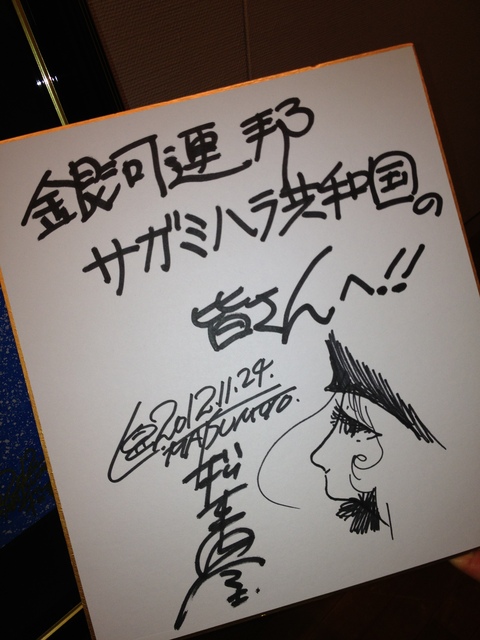 銀河連邦
サガミハラ共和国の
皆さんへ!!
2012.11.24.